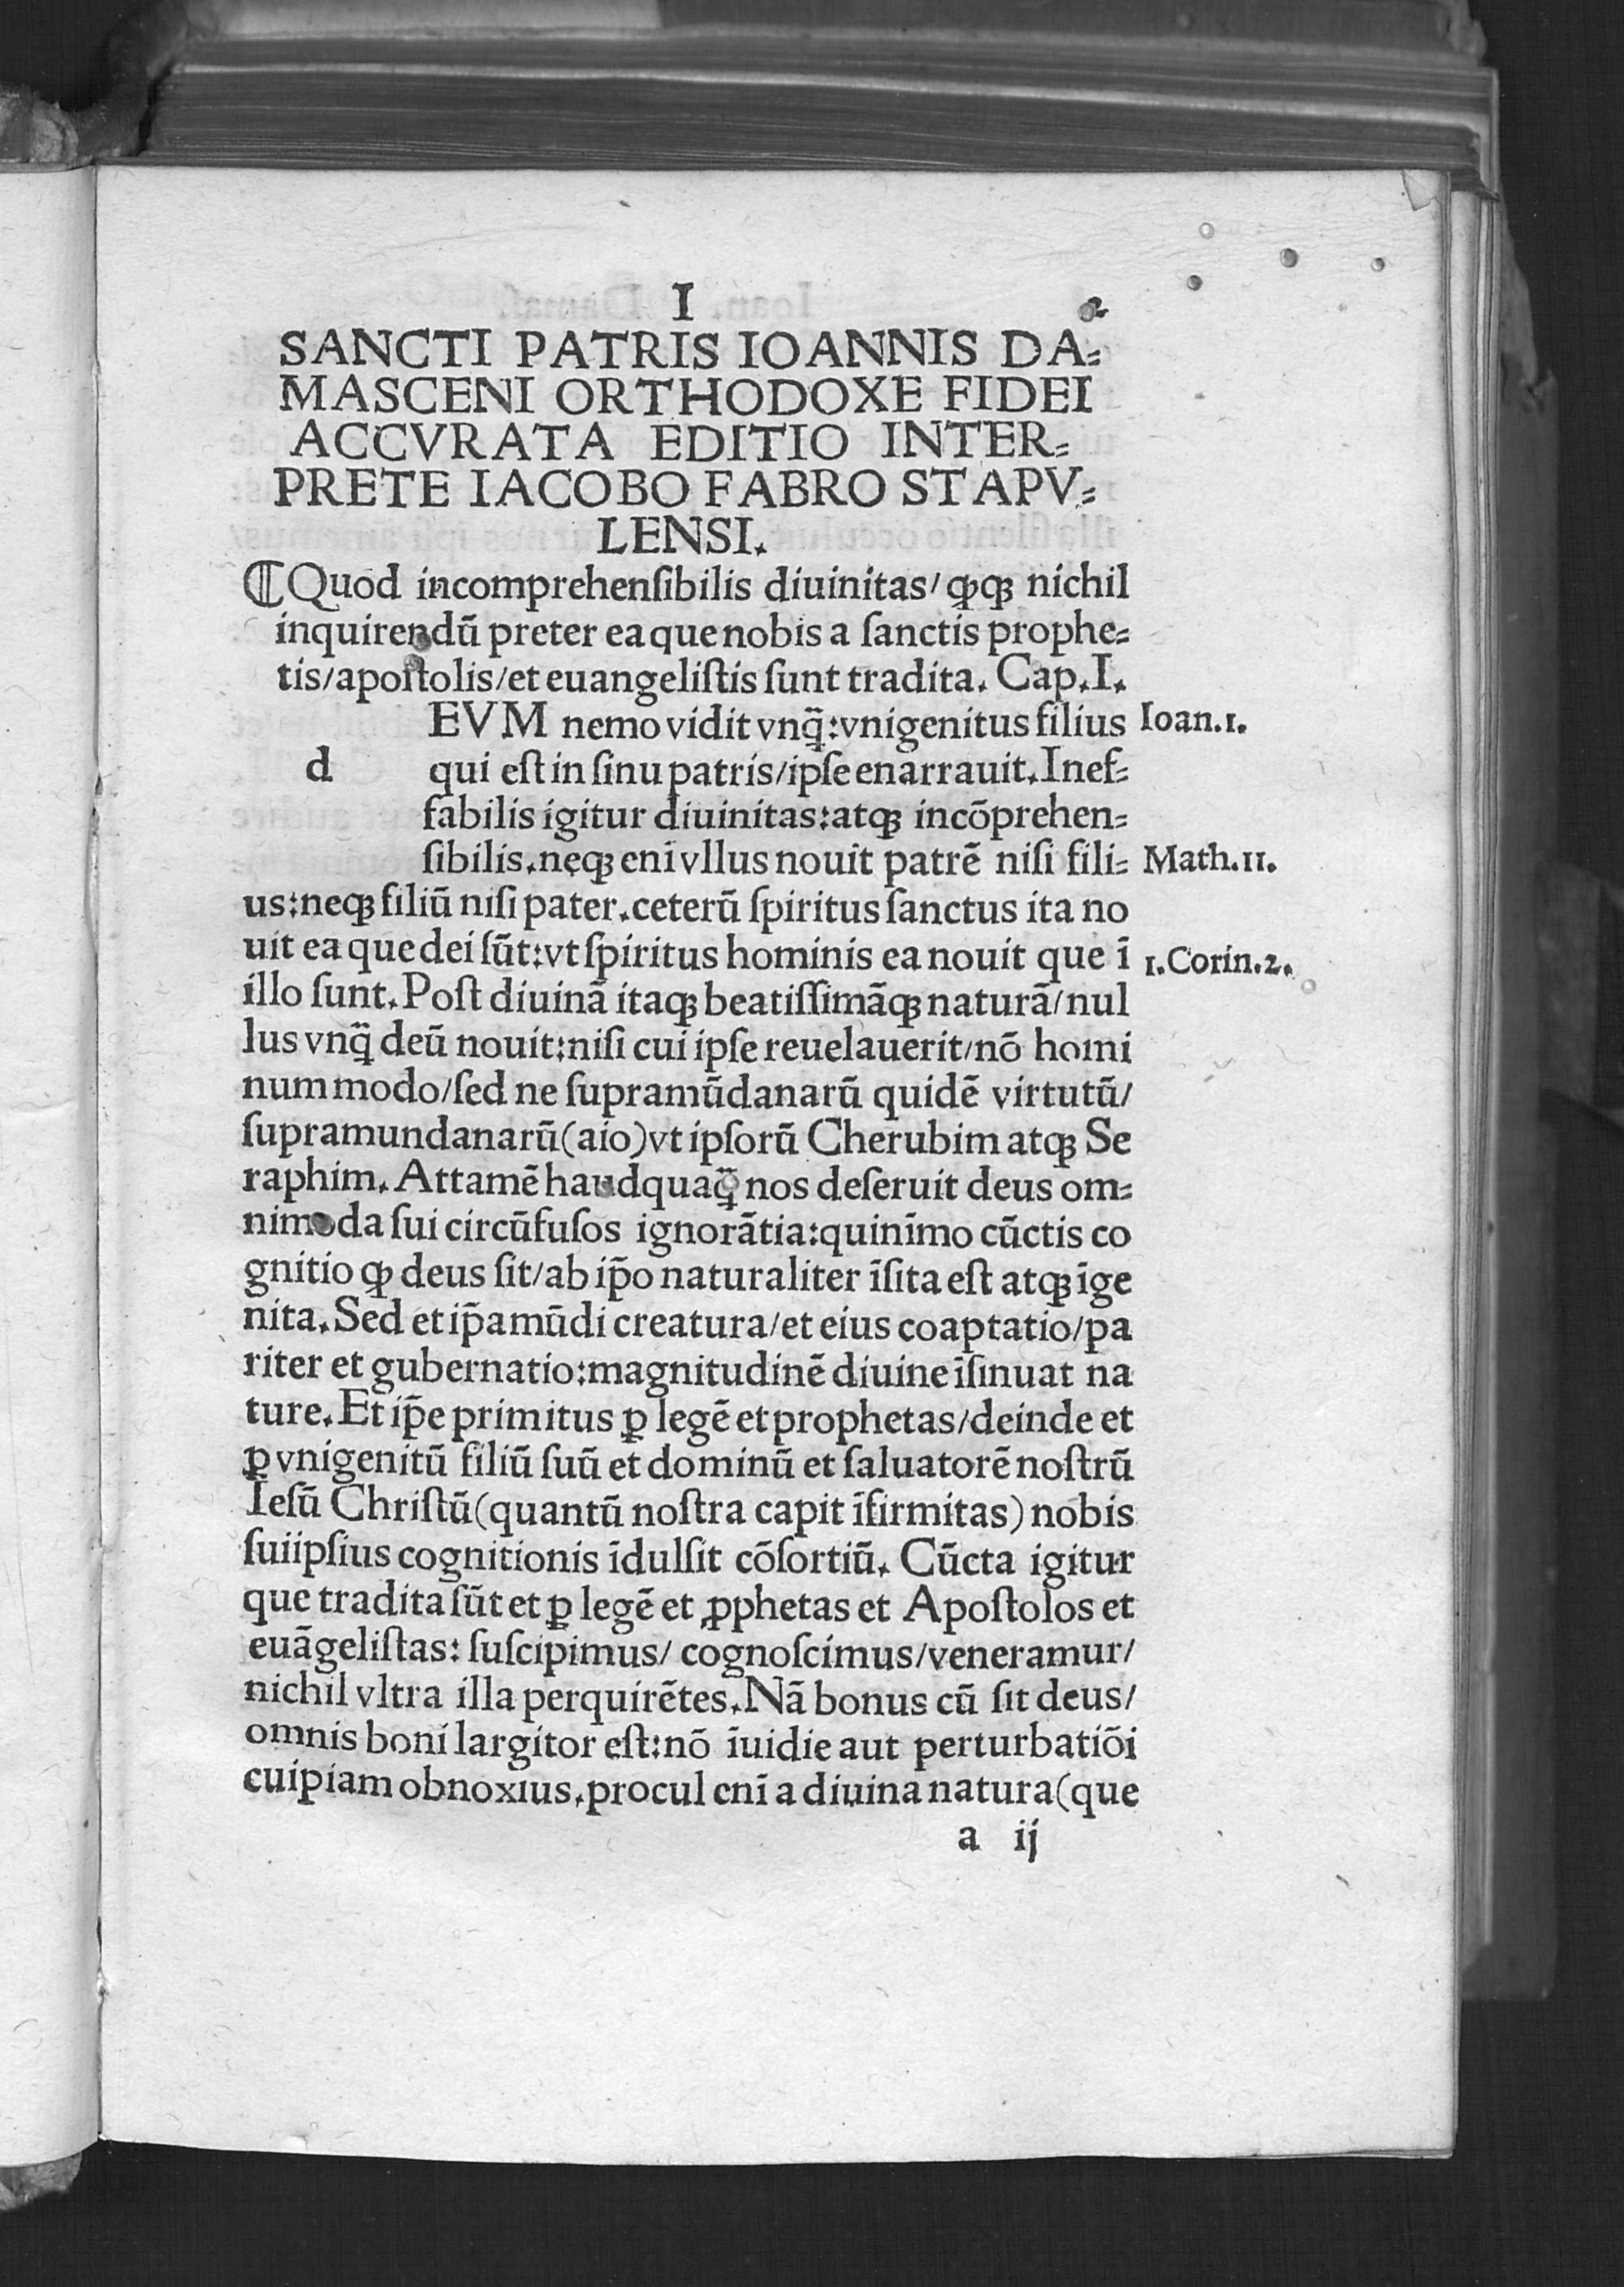 I 2
SANCTI PATRIS IOANNIS DA⸗
MASCENI ORTHODOXE FIDEI
ACCVRATA EDITIO INTER⸗
PRETE IACOBO FABRO STAPV⸗
LENSI.
⸿Quod incomprehenſibilis diuinitas/ ꝙꝙ nichil
inquirendū preter ea que nobis a ſanctis prophe⸗
tis/apoſtolis/et euangeliſtis ſunt tradita. Cap.I.
EVM nemo vidit vnq̄:vnigenitus filius Ioan.1.
d qui eſt in ſinu patris/ipſe enarrauit. Inef⸗
fabilis igitur diuinitas:atqꝫ incōprehen⸗
ſibilis.nęqꝫ enī vllus nouit patrē niſi fili⸗ Math.11.
us:neqꝫ filiū niſi pater.ceterū ſpiritus ſanctus ita no
uit ea que dei ſūt:vt ſpiritus hominis ea nouit que ī 1.Corin.2.
illo ſunt. Poſt diuinā itaqꝫ beatiſſimāqꝫ naturā/nul
lus vnq̄ deū nouit:niſi cui ipſe reuelauerit/nō homi
num modo/ſed ne ſupramūdanarū quidē virtutū/
ſupramundanarū(aio)vt ipſorū Cherubim atqꝫ Se
raphim. Attamē haudquaq̄ nos deſeruit deus om⸗
nimoda ſui circūfuſos ignorātia:quinīmo cūctis co
gnitio ꝙ deus ſit/ab ip̄o naturaliter īſita eſt atqꝫ īge
nita. Sed et ip̄a mūdi creatura/et eius coaptatio/pa
riter et gubernatio:magnitudinē diuine īſinuat na
ture. Et ip̄e primitus ꝑ legē et prophetas/deinde et
ꝑ vnigenitū filiū ſuū et dominū et ſaluatorē noſtrū
Ieſū Chriſtū(quantū noſtra capit īfirmitas)nobis
ſuiipſius cognitionis īdulſit cōſortiū. Cūcta igitur
que tradita ſūt et ꝑ legē et ꝓphetas et Apoſtolos et
euāgeliſtas: ſuſcipimus/ cognoſcimus/veneramur/
nichil vltra illa perquirētes. Nā bonus cū ſit deus/
omnis boni largitor eſt:nō īuidie aut perturbatiōi
cuipiam obnoxius.procul enī a diuina natura(que
a ij